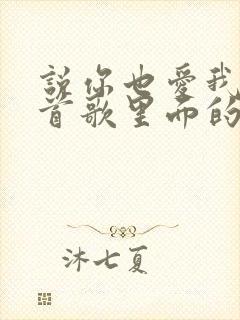 說你也愛我
首歌里面的
沐七夏